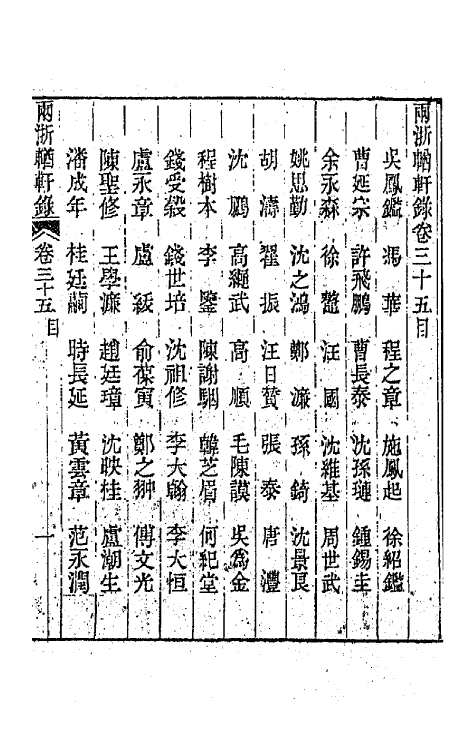 兩浙輶軒錄卷三十五目
吳鳳鑑 馮華 程之章 施鳳起 徐紹鑑
曹延宗 許飛鵬 曹長泰 沈孫璉 鍾錫圭
余永森 徐鼇 汪國 沈維基 周世武
姚思勤 沈之鴻 鄭濂 孫錡 沈景良
胡濤 翟振 汪日贊 張泰 唐灃
沈鵬 高繩武 高順 毛陳謨 吳為金
程樹本 李鑒 陳謝駰 韓芝眉 何紀堂
錢受穀 錢世培 沈祖修 李大翰 李大恒
盧永章 盧綬 俞葆寅 鄭之翀 傅文光
陳聖修 王學濂 趙廷璋 沈映桂 盧潮生
潘成年 桂廷嗣 時長延 黃雲章 范永潤
兩浙輶軒錄 卷三十五目 一